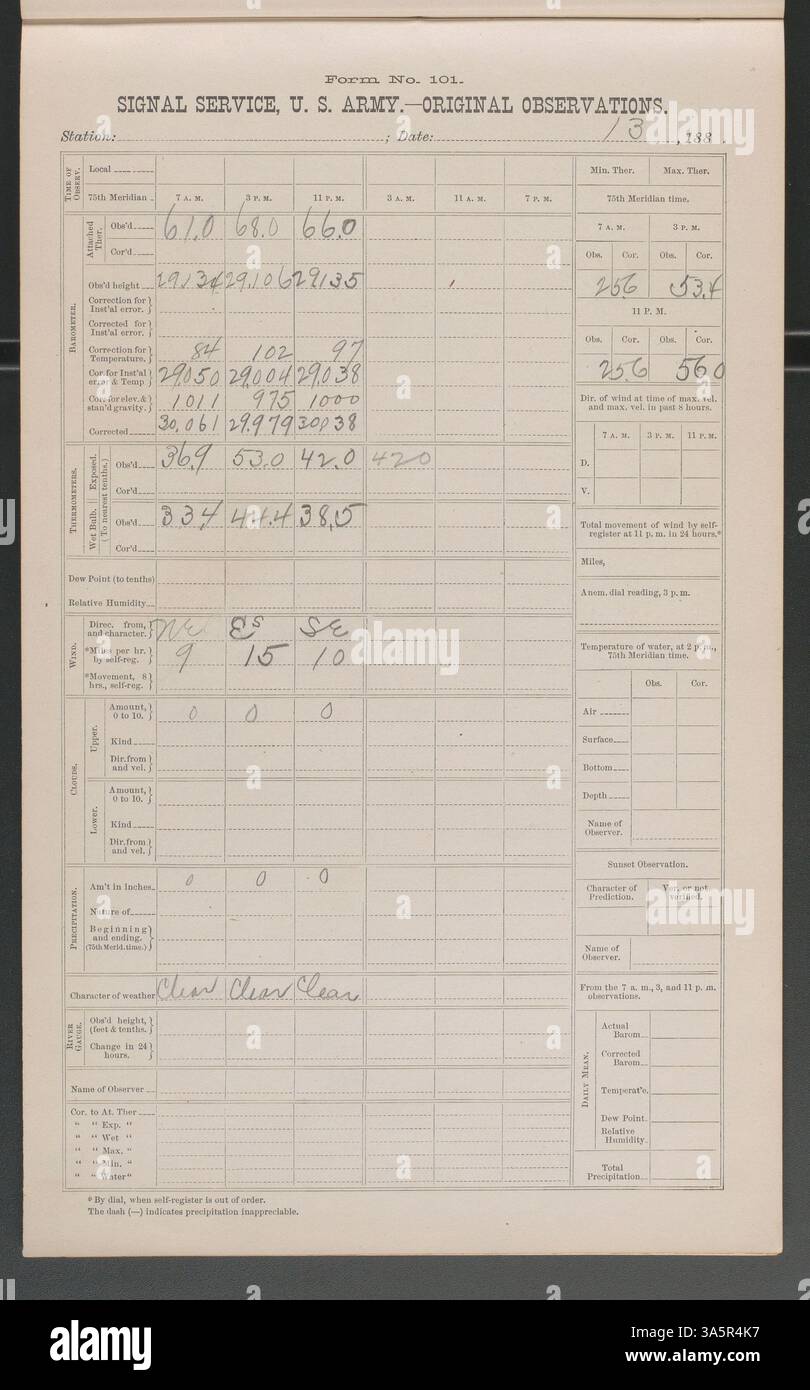 Form No. 101.
SIGNAL SERVICE, U. S. ARMY.—ORIGINAL OBSERVATIONS.
Station: ; Date: 13 , 188 .
TIME OF OBSERV.
Local
75th Meridian 7 A. M. 3 P. M. 11 P. M. 3 A. M. 11 A. M. 7 P. M.
BAROMETER.
Attached Ther.
Obs'd 61.0 68.0 66.0
Cor'd
Obs'd height 29.134 29.106 29.135
Correction for Inst'al error.
Corrected for Inst'al error.
Correction for Temperature. 84 102 97
Cor. for Inst'al error & Temp 29.050 29.004 29.038
Cor. for elev. & stan'd gravity. 1011 975 1000
Corrected 30.061 29.979 30.038
THERMOMETERS.
(To nearest tenths.)
Exposed.
Obs'd 36.9 53.0 42.0 420
Cor'd
Wet Bulb.
Obs'd 33.4 44.4 38.5
Cor'd
Dew Point (to tenths)
Relative Humidity
WIND.
Direc. from, and character. NE Es SE
*Miles per hr. by self-reg. 9 15 10
*Movement, 8 hrs., self-reg.
CLOUDS.
Upper.
Amount, 0 to 10. 0 0 0
Kind
Dir. from and vel.
Lower.
Amount, 0 to 10.
Kind
Dir. from and vel.
PRECIPITATION.
Am't in Inches 0 0 0
Nature of
Beginning and ending. (75th Merid. time.)
Character of weather Clear Clear Clear
RIVER GAUGE.
Obs'd height, (feet & tenths.)
Change in 24 hours.
Name of Observer
Cor. to At. Ther
" " Exp. "
" " Wet "
" " Max. "
" " Min. "
" " Water "
Min. Ther. Max. Ther.
75th Meridian time.
7 A. M. 3 P. M.
Obs. Cor. Obs. Cor.
25.6 53.4
11 P. M.
Obs. Cor. Obs. Cor.
25.6 56.0
Dir. of wind at time of max. vel. and max. vel. in past 8 hours.
7 A. M. 3 P. M. 11 P. M.
D.
V.
Total movement of wind by self-register at 11 p. m. in 24 hours.*
Miles,
Anem. dial reading, 3 p. m.
Temperature of water, at 2 p. m., 75th Meridian time.
Obs. Cor.
Air
Surface
Bottom
Depth
Name of Observer.
Sunset Observation.
Character of Prediction. Ver. or not verified.
Name of Observer.
From the 7 a. m., 3, and 11 p. m. observations.
DAILY MEAN.
Actual Barom
Corrected Barom
Temperat'e.
Dew Point.
Relative Humidity
Total Precipitation
* By dial, when self-register is out of order.
The dash (—) indicates precipitation inappreciable.
alamy
a
alamy
Image ID: 3A5R4K7
www.alamy.com